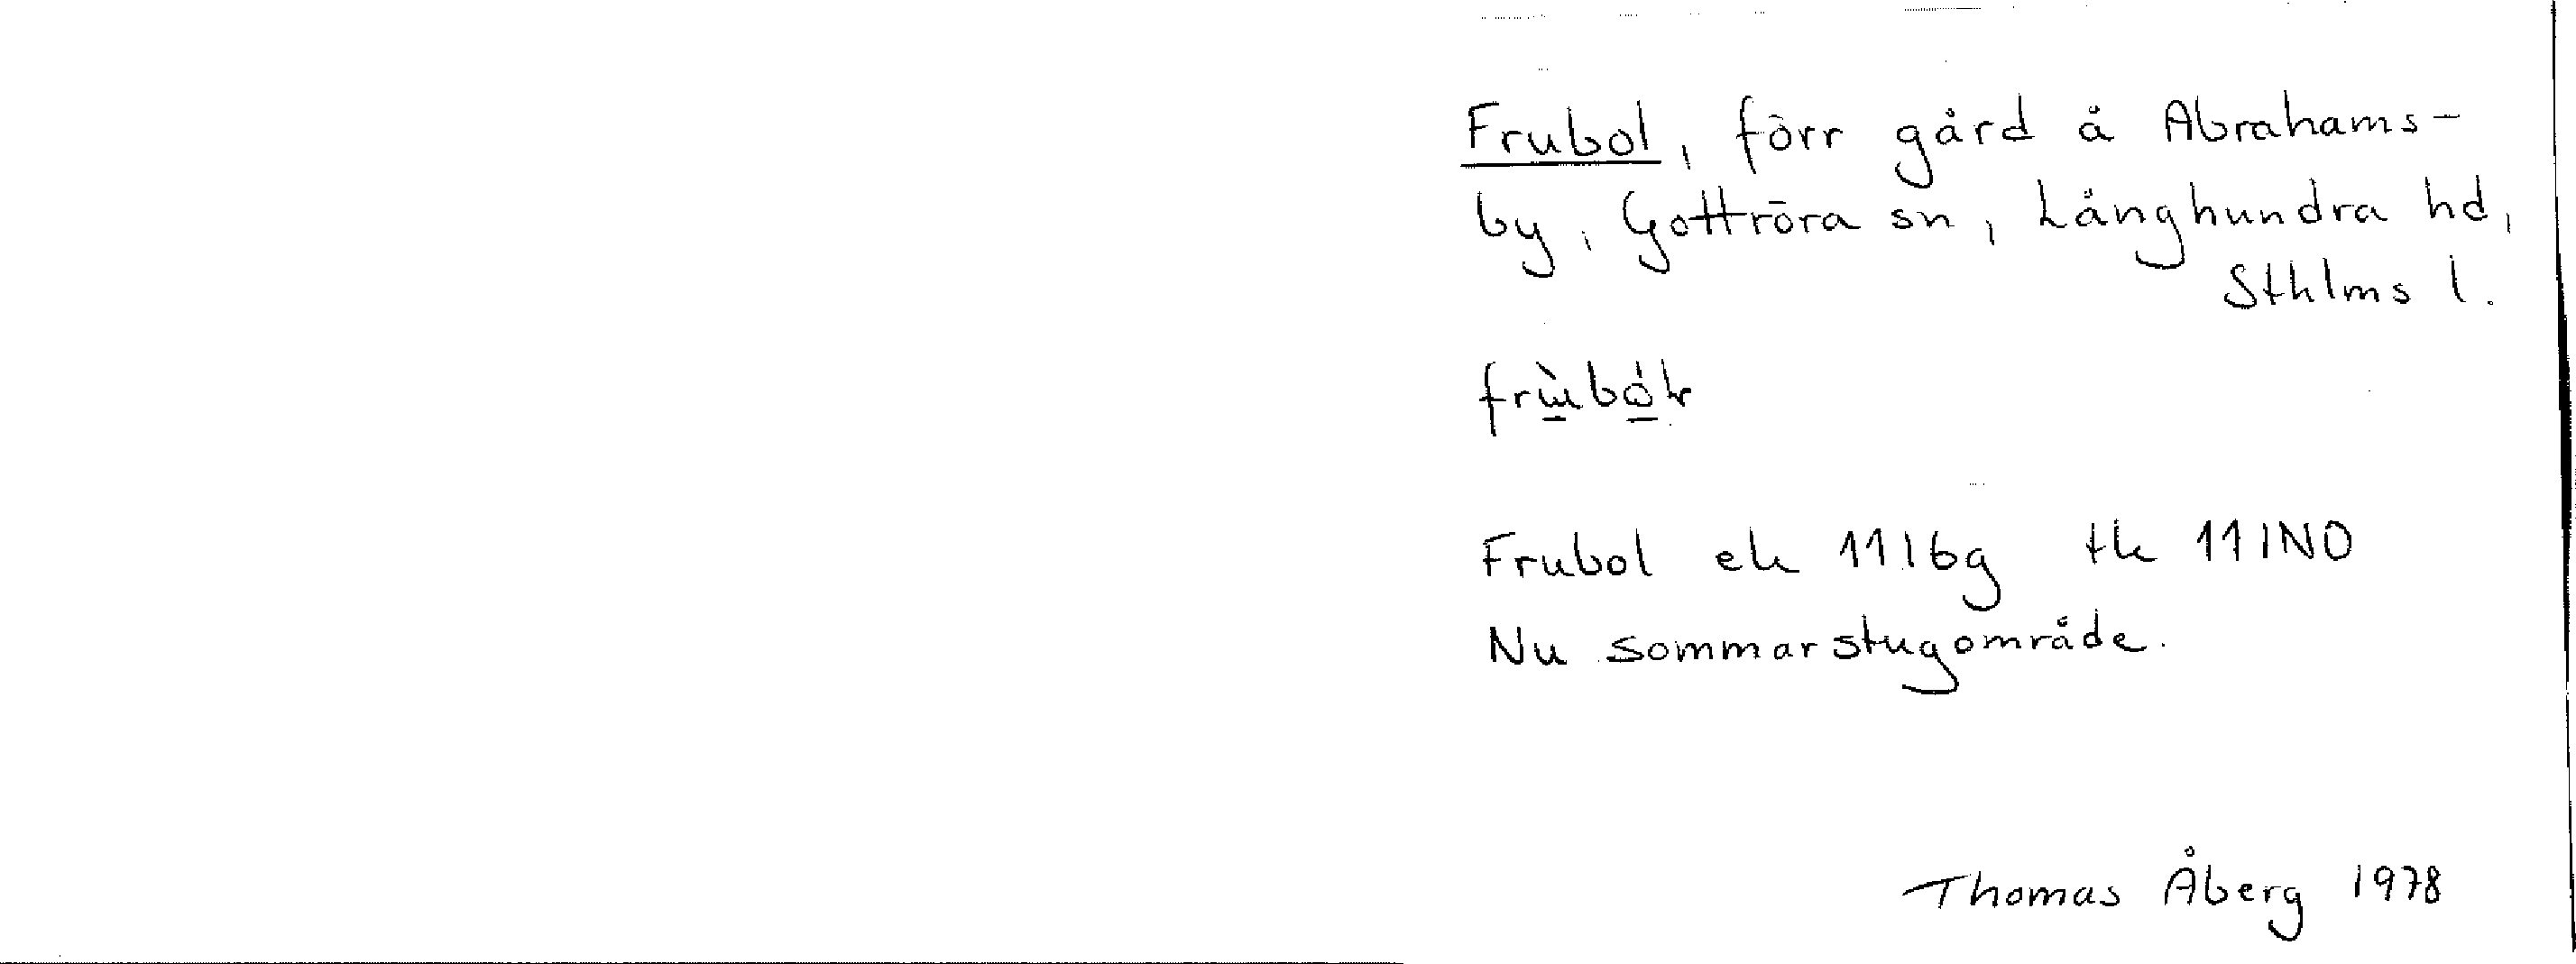 Frubol, förr gård å Abrahams-
by, Gottröra sn, Långhundra hd,
Sthlms l.
Frubol ek 11I6g tk 11INO
Nu sommarstugområde.
Thomas Åberg 1978